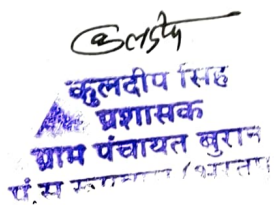 कुलदीप
कुलदीप सिंह
प्रशासक
ग्राम पंचायत बुरान
पं.स